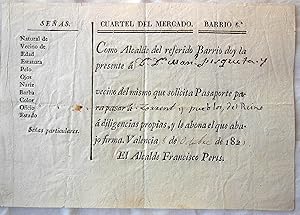 SEÑAS.
Natural de
Vecino de
Edad
Estatura
Pelo
Ojos
Nariz
Barba
Color
Oficio
Estado
Señas particulares.
CUARTEL DEL MERCADO. BARRIO
Como Alcalde del referido Barrio doy la
presente á Dn.
vecino del mismo que solicita Pasaporte pa-
ra pasar á Torrent y pueblos del Reino
á diligencias propias, y le abona el que aba-
jo firma. Valencia de Octubre de 182
El Alcalde Francisco Peris.